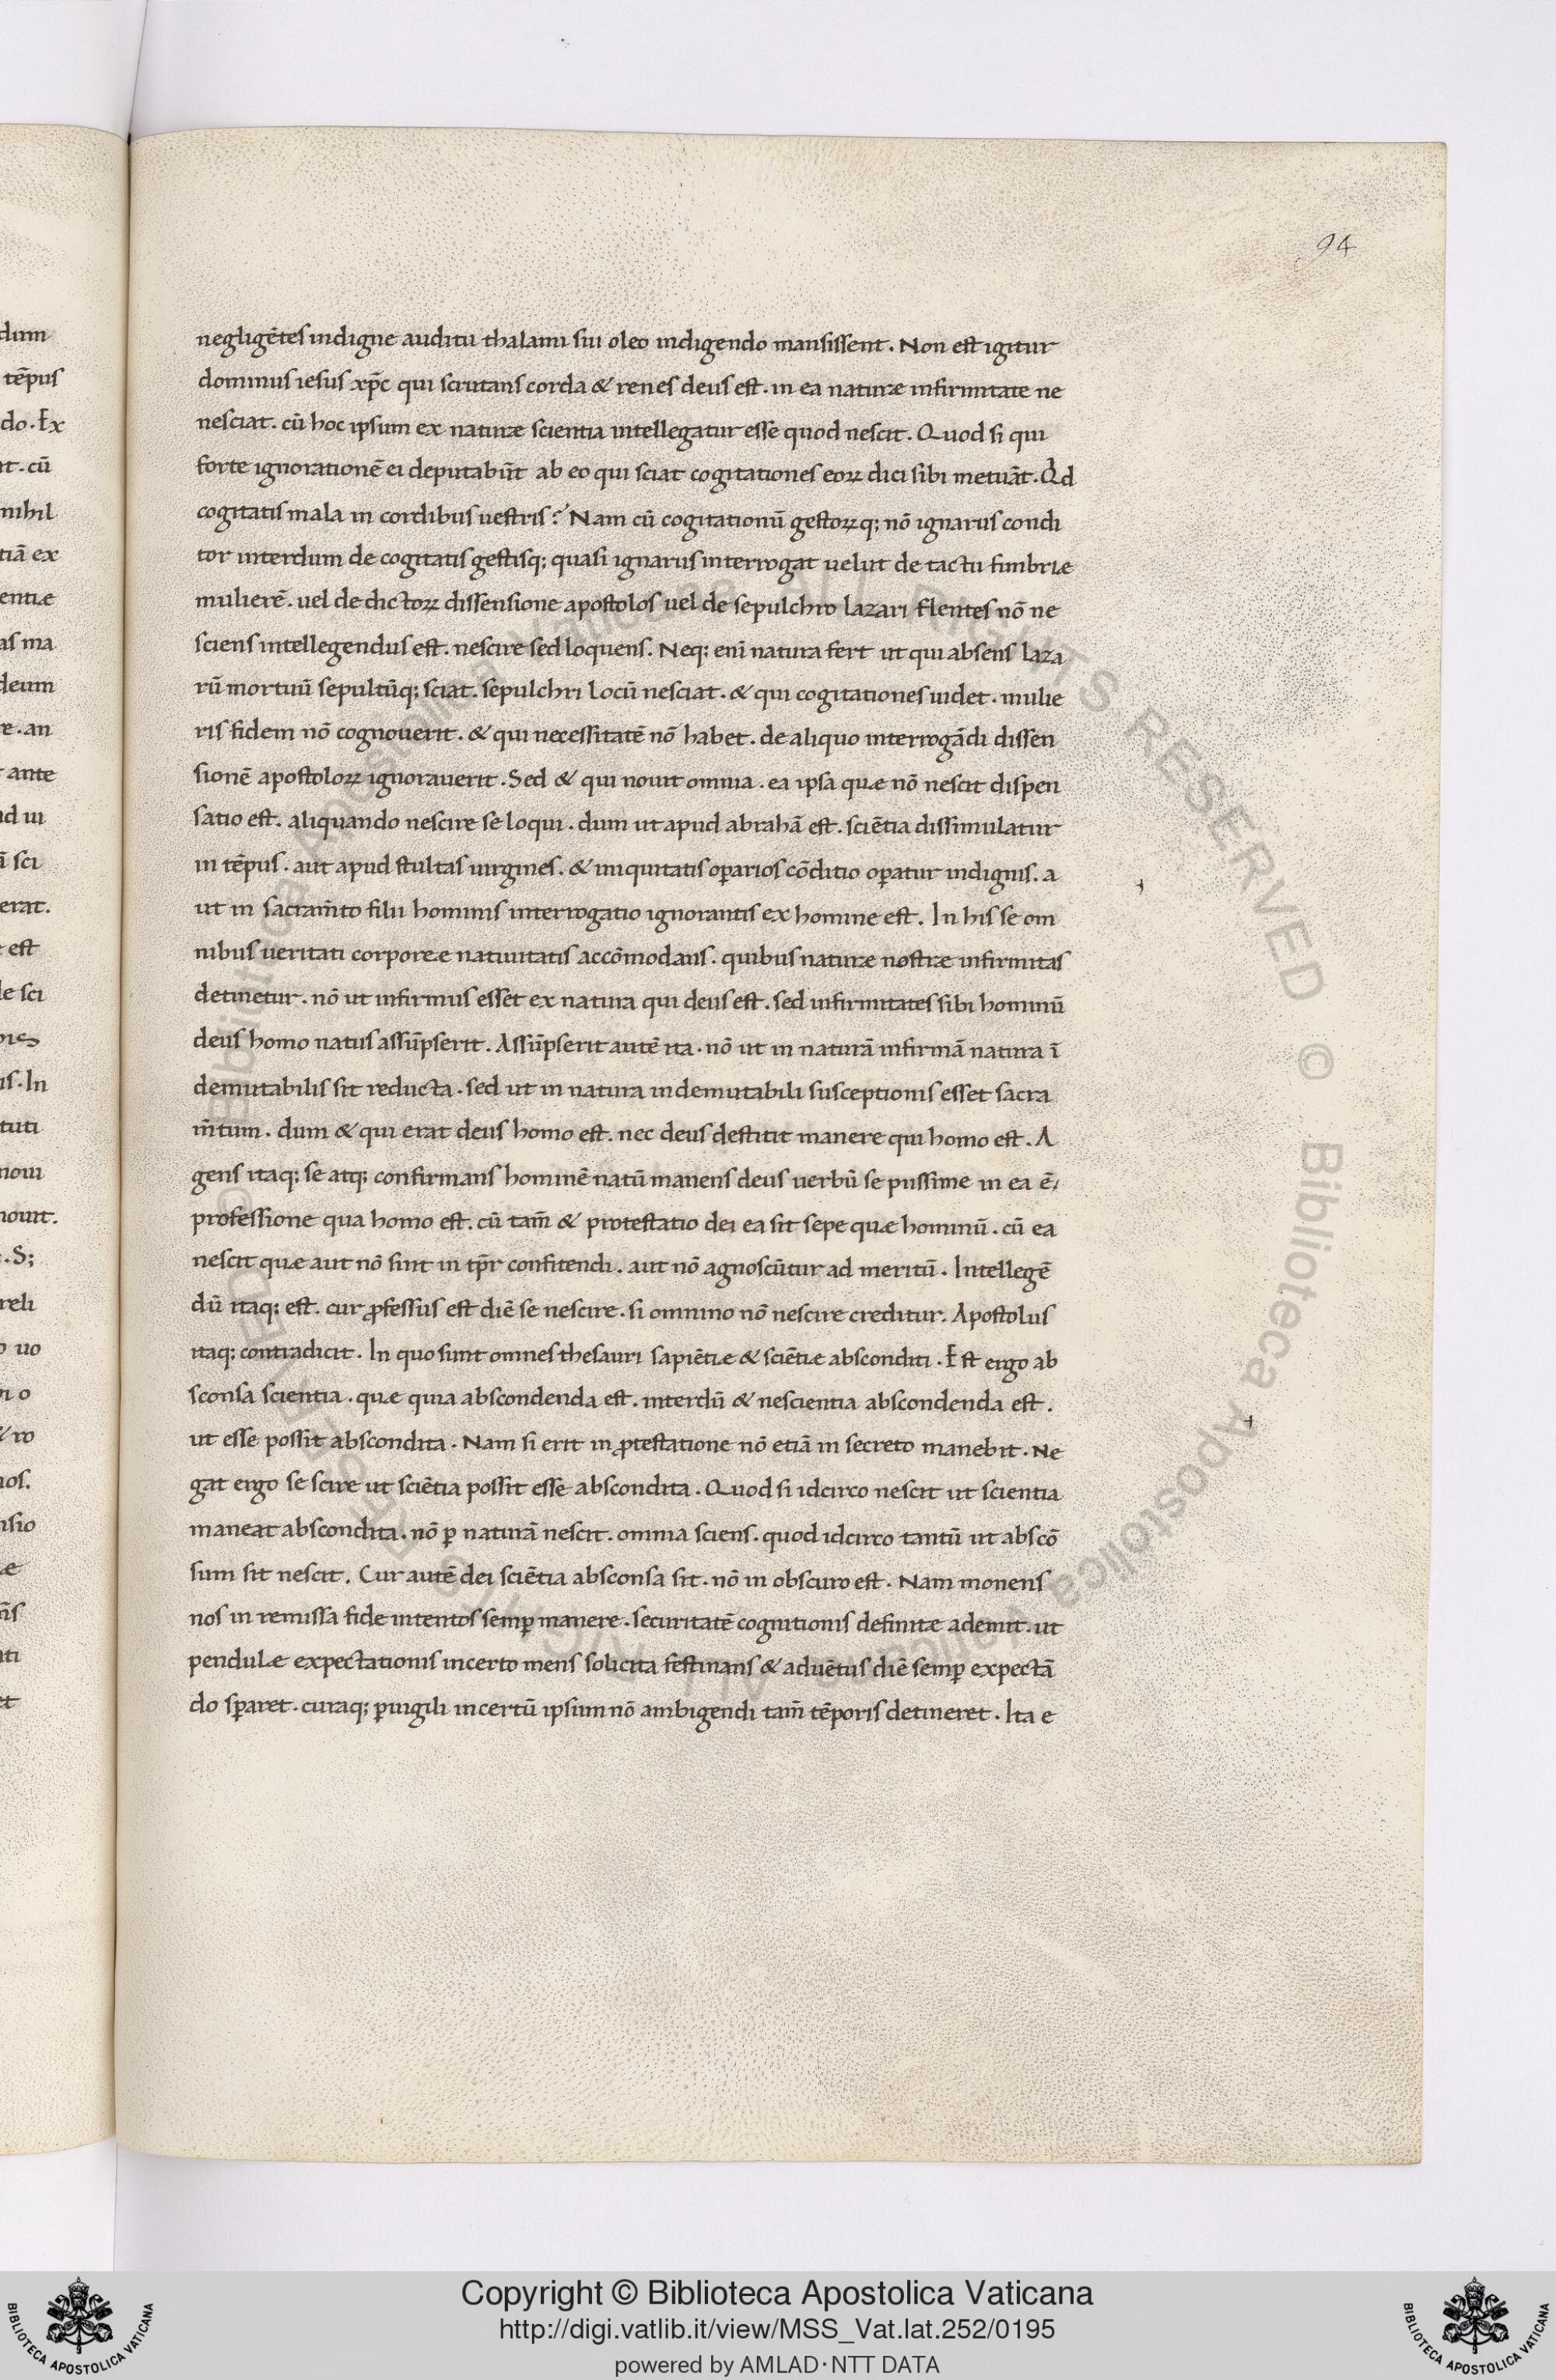 94
negligētes indigne auditu thalami sui oleo indigendo mansissent. Non est igitur
dominus iesus xp̄c qui scrutans corda & renes deus est. in ea naturæ infirmitate ne
nesciat. cū hoc ipsum ex naturæ scientia intellegatur esse quod nescit. Quod si qui
forte ignorationē ei deputabūt ab eo qui sciat cogitationes eoꝝ dici sibi metuāt. Qd
cogitatis mala in cordibus uestris? Nam cū cogitationū gestoꝝq; nō ignarus condi
tor interdum de cogitatis gestisq; quasi ignarus interrogat uelut de tactu fimbriæ
mulierē. uel de dictoꝝ dissensione apostolos uel de sepulchro lazari flentes nō ne
sciens intellegendus est. nescire sed loquens. Neq; enī natura fert ut qui absens laza
rū mortuū sepultūq; sciat. sepulchri locū nesciat. & qui cogitationes uidet. mulie
ris fidem nō cognouerit. & qui necessitatē nō habet. de aliquo interrogādi dissen
sionē apostoloꝝ ignorauerit. Sed & qui nouit omnia. ea ipsa quæ nō nescit dispen
satio est. aliquando nescire se loqui. dum ut apud abrahā est. sciētia dissimulatur
in tēpus. aut apud stultas uirgines. & iniquitatis oꝑarios cōditio oꝑatur indignis. a
ut in sacram̄to filii hominis interrogatio ignorantis ex homine est. In his se om
nibus ueritati corporeæ natiuitatis accōmodans. quibus naturæ nostræ infirmitas
detinetur. nō ut infirmus esset ex natura qui deus est. sed infirmitates sibi hominū
deus homo natus assūpserit. Assūpserit autē ita. nō ut in naturā infirmā natura ī
demutabilis sit reducta. sed ut in natura indemutabili susceptionis esset sacra
m̄tum. dum & qui erat deus homo est. nec deus destitit manere qui homo est. A
gens itaq; se atq; confirmans hominē natū manens deus uerbū se piissime in ea ē
professione qua homo est. cū tam̄ & protestatio dei ea sit sepe quæ hominū. cū ea
nescit quæ aut nō sunt in tp̄r confitendi. aut nō agnoscūtur ad meritū. Intellegē
dū itaq; est. cur ꝓfessus est diē se nescire. si omnino nō nescire creditur. Apostolus
itaq; contradicit. In quo sunt omnes thesauri sapiētiæ & sciētiæ absconditi. Est ergo ab
sconsa scientia. quæ quia abscondenda est. interdū & nescientia abscondenda est.
ut esse possit abscondita. Nam si erit in ꝓtestatione nō etiā in secreto manebit. Ne
gat ergo se scire ut sciētia possit esse abscondita. Quod si idcirco nescit ut scientia
maneat abscondita. nō ꝑ naturā nescit. omnia sciens. quod idcirco tantū ut abscō
sum sit nescit. Cur autē dei sciētia absconsa sit. nō in obscuro est. Nam monens
nos in remissa fide intentos semꝑ manere. securitatē cognitionis definitæ ademit. ut
pendulæ expectationis incerto mens solicita festinans & aduētus diē semꝑ expectā
do sꝑaret. curaq; ꝑuigili incertū ipsum nō ambigendi tam̄ tēporis detineret. Ita e
dum
tēpus
do. Ex
t. cū
nihil
tiā ex
entiæ
as ma
deum
e. an
ante
d ui
sci
erat.
est
e sci
is. In
tuti
noui
nouit.
. S;
reli
uo
o
ro
nos.
nsio
Copyright © Biblioteca Apostolica Vaticana
http://digi.vatlib.it/view/MSS_Vat.lat.252/0195
powered by AMLAD·NTT DATA
BIBLIOTECA APOSTOLICA VATICANA
BIBLIOTECA APOSTOLICA VATICANA